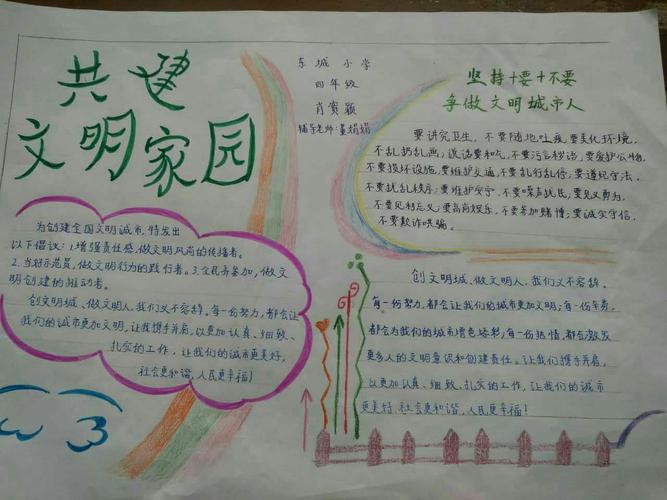 共建
文明家园
东城小学
四年级
肖宾颖
辅导老师:姜娟娟
坚持十要十不要
争做文明城市人
要讲究卫生,不要随地吐痰;要美化环境,
不乱扔乱画;说话要和气,不要污言秽语;要爱护公物,
不要损坏设施;要维护交通,不要乱行乱停;要遵纪守法,
不要扰乱秩序;要维护安宁,不要噪声扰民;要见义勇为,
不要见利忘义;要高尚娱乐,不要参加赌博;要诚实守信,
不要欺诈哄骗。
为创建全国文明城市,特发出
以下倡议:1.增强责任感,做文明风尚的传播者。
2.当好示范员,做文明行为的践行者。3.全民齐参加,做文
明创建的推动者。
创文明城、做文明人,我们义不容辞。每一份努力,都会让
我们的城市更加文明,让我携手并肩,以更加认真、细致、
扎实的工作,让我们的城市更美好,
社会更和谐,人民更幸福!
创文明城、做文明人,我们义不容辞。
每一份努力,都会让我们的城市更加文明;每一份车费,
都会为我们的城市增色添彩;每一份热情,都会激发
更多人的文明意识和创建责任。让我们携手并肩,
以更加认真、细致、扎实的工作,让我们的城市
更美好,社会更和谐,人民更幸福!